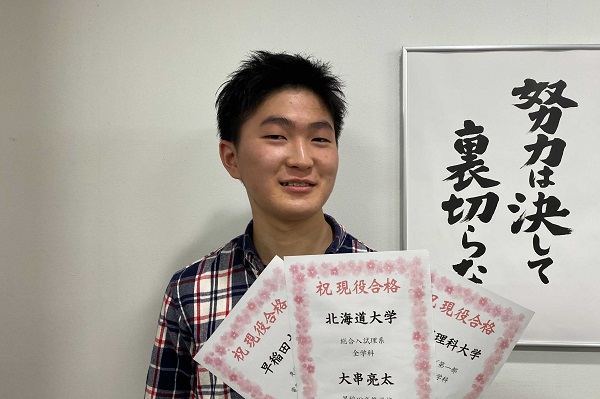 努力は決して
裏切らな
祝 現役合格
早稲田
祝 現役合格
北海道大学
総合入試理系
全学科
大串亮太
祝 現役合格
理科大学
第一部
学科